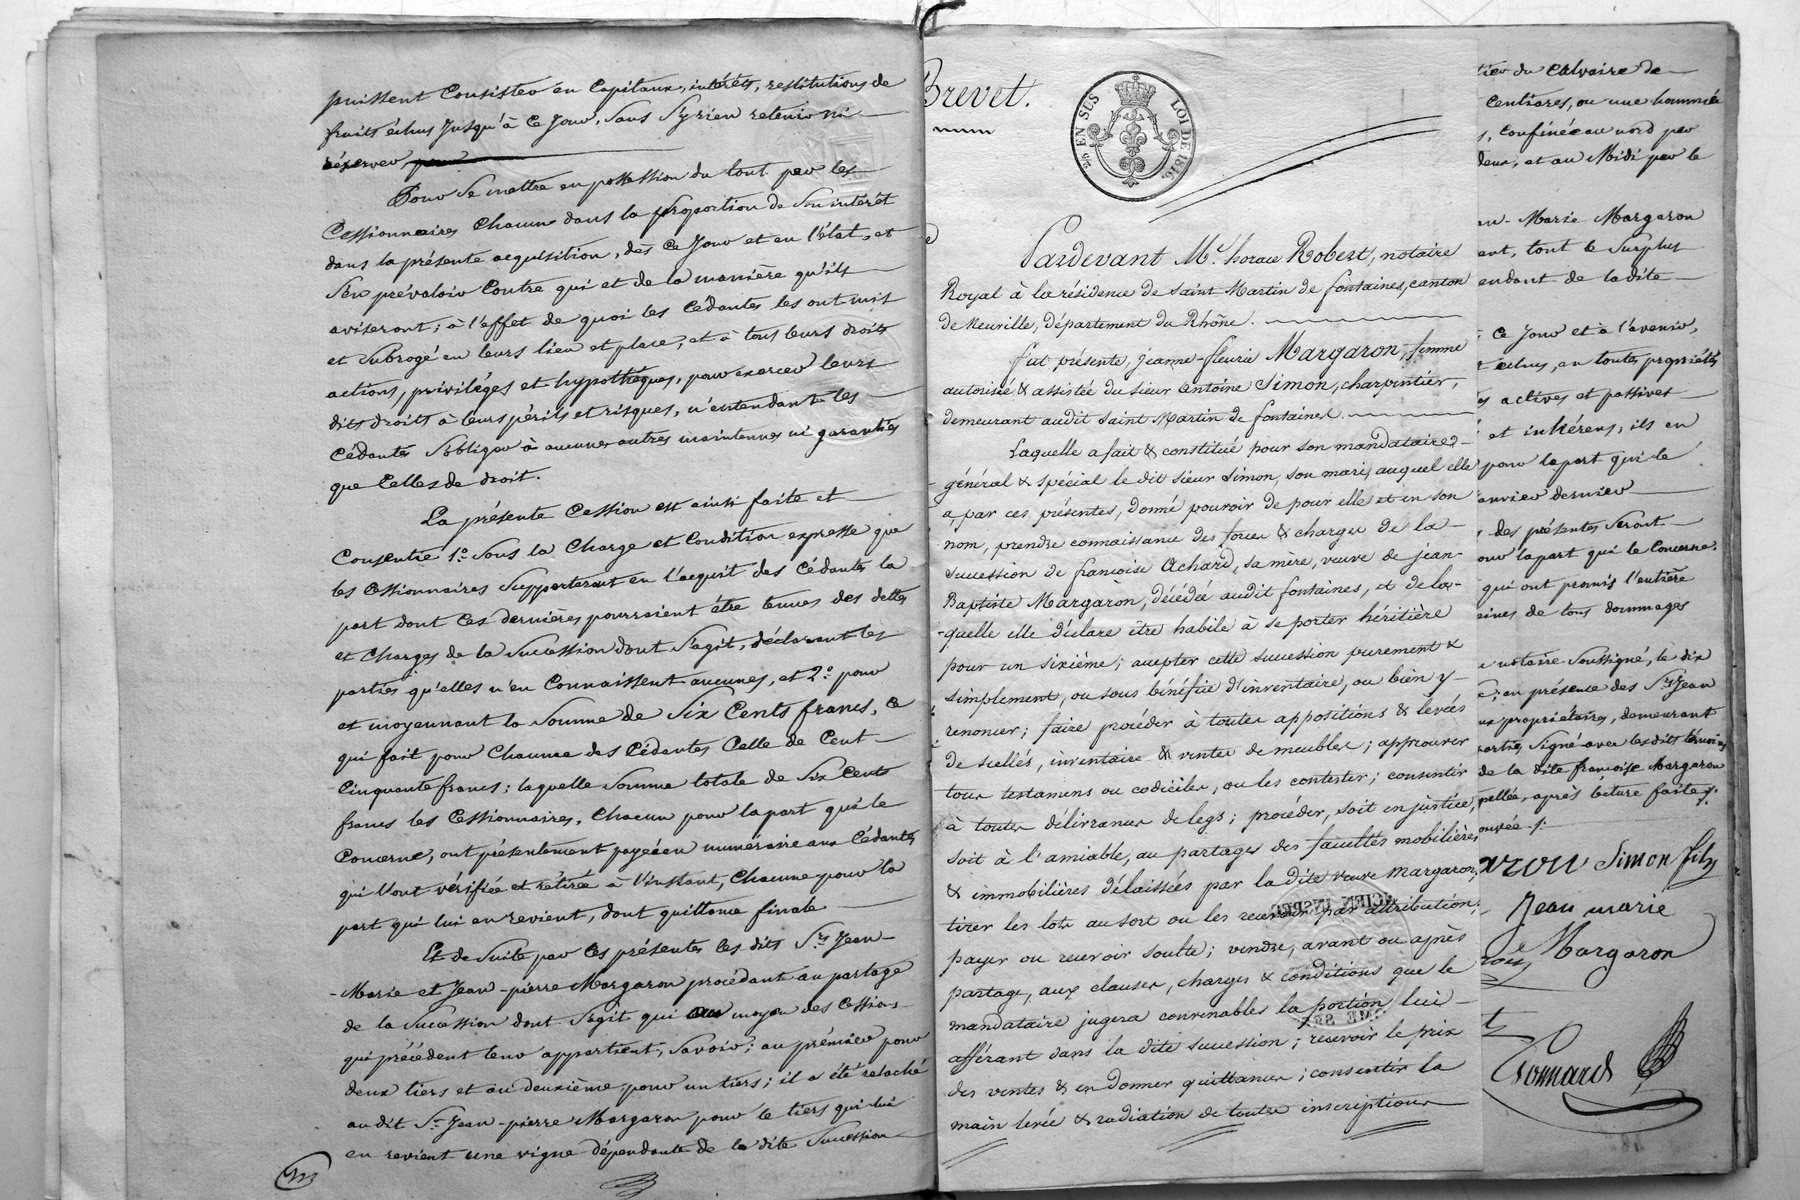 puissent Consister en Capitaux, intérêts, restitutions de
fruits échus jusqu'à ce jour, sans s'y rien retenir ni
réserver
Pour se mettre en possession du tout par les
Cessionnaires Chacun dans la proportion de son intérêt
dans la présente acquisition, dès ce jour et en l'état, et
s'en prévaloir Contre qui et de la manière qu'ils
aviseront; à l'effet de quoi les Cédantes les ont mis
et subrogé en leurs lieu et place, et à tous leurs droits
actions, priviléges et hypothèques, pour exercer leurs
dits droits à leurs périls et risques, n'entendant les
Cédantes s'obliger à aucunes autres maintenues ni garanties
que Celles de droit.
La présente Cession est ainsi faite et
Consentie 1.° sous la Charge et Condition expresse que
les Cessionnaires supporteront en l'acquit des Cédantes la
part dont ces dernières pourraient être tenues des dettes
et Charges de la succession dont s'agit, déclarant les
parties qu'elles n'en Connaissent aucunes, et 2.° pour
et moyennant la somme de Six Cents francs, ce
qui fait pour Chacune des Cédantes Celle de Cent
Cinquante francs; laquelle somme totale de Six Cents
francs les Cessionnaires, Chacun pour la part qui le
Concerne, ont présentement payée en numéraire aux Cédantes
qui l'ont vérifiée et retirée à l'instant, Chacune pour la
part qui lui en revient, dont quittance finale
Et de suite par ces présentes les dits Srs Jean-
Marie et Jean-pierre Margaron procédant au partage
de la succession dont s'agit qui au moyen des Cessions
qui précèdent leur appartient, savoir; au premier pour
deux tiers et au deuxième pour un tiers; il a été relaché
au dit Sr Jean-pierre Margaron pour le tiers qui lui
en revient une vigne dépendante de la dite succession
Brevet.
25 EN SUS
LOI DE 1816.
Pardevant Me. horace Robert, notaire
Royal à la résidence de saint Martin de fontaines, canton
de Neuville, département du Rhône.
fut présente, jeanne-fleurie Margaron, femme
autorisée & assistée du sieur antoine Simon, charpentier,
demeurant audit saint Martin de fontaines
Laquelle a fait & constitué pour son mandataire
général & spécial le dit sieur simon, son mari, auquel elle
a, par ces présentes, donné pouvoir de pour elle et en son
nom, prendre connaissance des forces & charges de la
succession de françoise Achard, sa mère, veuve de jean-
Baptiste Margaron, décédée audit fontaines, et de la-
-quelle elle déclare être habile à se porter héritière
pour un sixième; accepter cette succession purement &
simplement, ou sous bénéfice d'inventaire, ou bien y
renoncer; faire procéder à toutes appositions & levées
de scellés, inventaire & ventes de meubles; approuver
tous testamens ou codiciles, ou les contester; consentir
à toutes délivrances de legs; procéder, soit en justice,
soit à l'amiable, au partage des facultés mobilières
& immobilières délaissées par la dite veuve Margaron,
tirer les lots au sort ou les recevoir par attribution;
payer ou recevoir soulte; vendre, avant ou après
partage, aux clauses, charges & conditions que le
mandataire jugera convenables la portion lui
afférant dans la dite succession; recevoir le prix
des ventes & en donner quittances; consentir la
main levée & radiation de toutes inscriptions
du Calvaire de
Centiares, ou une hommée
, Confinée au nord par
et au Midi par le
Marie Margaron
tout le surplus
de la dite
Ce jour et à l'avenir,
échus, en toutes propriétés
actives et passives
et inhérens; ils en
pour la part qui le
Janvier dernier
des présentes seront
pour la part qui le Concerne.
qui ont promis l'entière
de tous dommages
notaire soussigné, le dix
en présence des Srs Jean
propriétaires, demeurant
signé avec les dits témoins
de la dite françoise Margaron
après lecture faite
Simon fils
Jean marie
Margaron